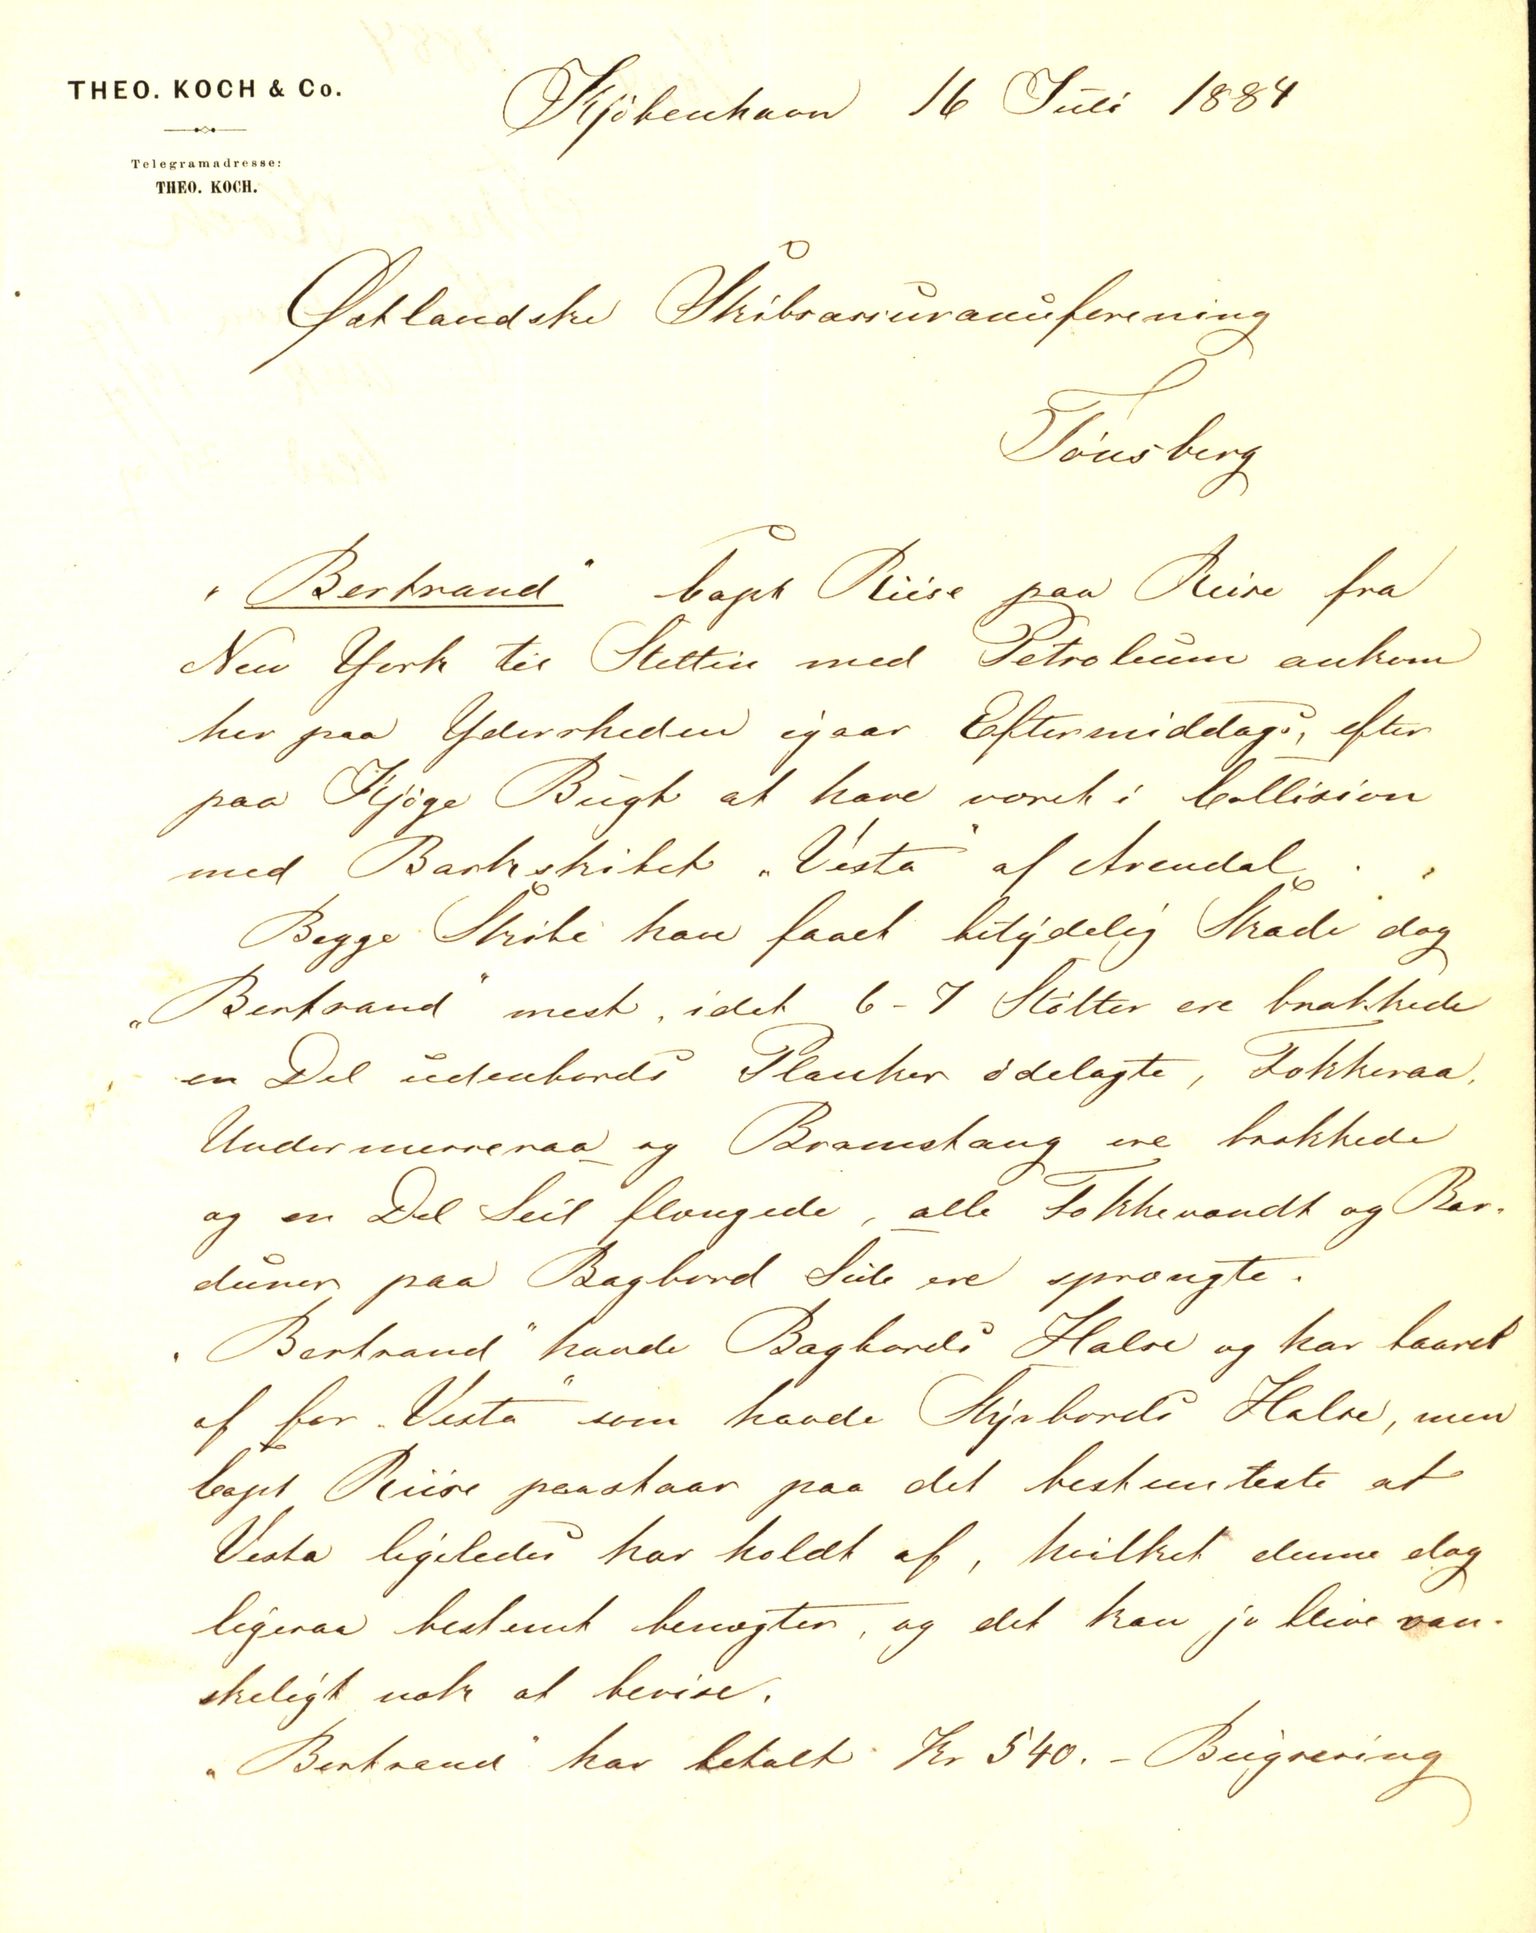 THEO. KOCH & Co.
Telegramadresse:
THEO. KOCH.
Kjöbenhavn 16 Juli 1884
Østlandske Skibsassuranceforening
Tönsberg
"Bertrand" Capt Riise paa Reise fra
New York til Stettin med Petroleum ankom
her paa Yderrheden igaar Eftermiddags, efter
paa Kjöge Bugt at have været i Collision
med Barkskibet "Vesta" af Arendal.
Begge Skibe have faaet betydelig Skade dog
"Bertrand" mest, idet 6-7 Stötter ere brækkede
en Del udenbords Planker ödelagte, Fokkeraa,
Undermerseraa og Bramstang ere brækkede
og en Del Seil flængede, alle Fokkevandt og Bar-
duner paa Bagbord Side ere sprængte.
"Bertrand" havde Bagbords Halse og har baaret
af for "Vesta" som havde Styrbords Halse, men
Capt Riise paastaar paa det bestemteste at
Vesta ligeledes har holdt af, hvilket denne dog
ligesaa bestemt benægter, og det kan jo blive van-
skeligt nok at bevise.
"Bertrand" har betalt Kr 540.- Bugsering